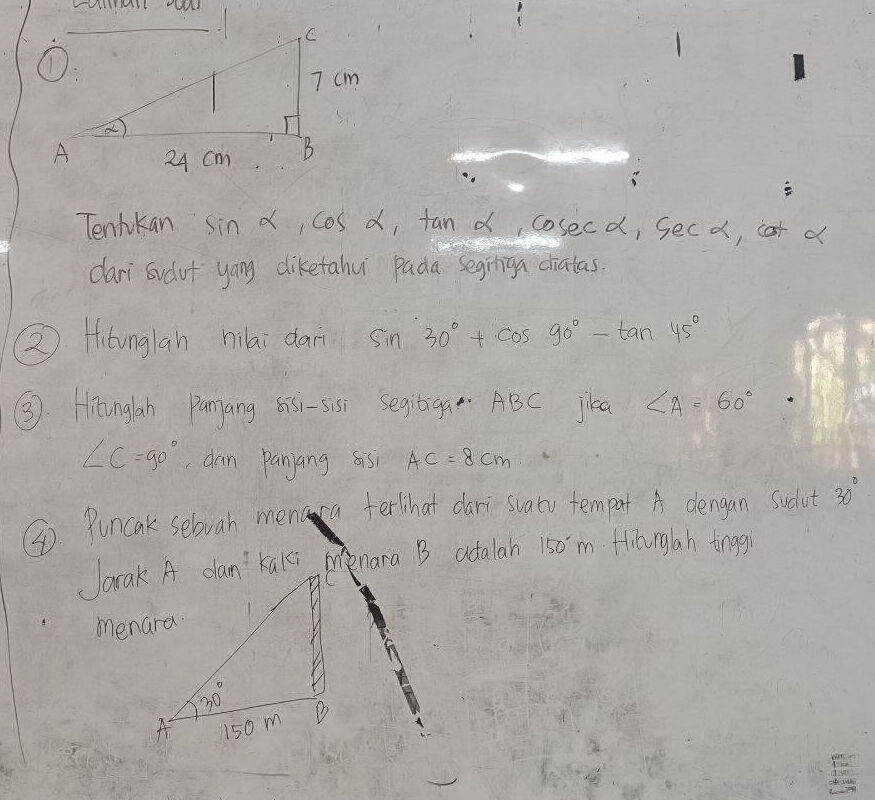 Latihan soal
①.
C
7 cm
A
α
B
24 cm
Tentukan sin α, cos α, tan α, cosec α, sec α, cot α
dari sudut yang diketahui pada segitiga diatas.
②. Hitunglah nilai dari sin 30° + cos 90° - tan 45°
③. Hitunglah Panjang sisi-sisi segitiga ABC jika ∠A = 60°
∠C = 90°, dan panjang sisi AC = 8 cm.
④. Puncak sebuah menara terlihat dari suatu tempat A dengan sudut 30°
Jarak A dan kaki menara B adalah 150 m. Hitunglah tinggi
menara.
C
30°
A
150 m
B